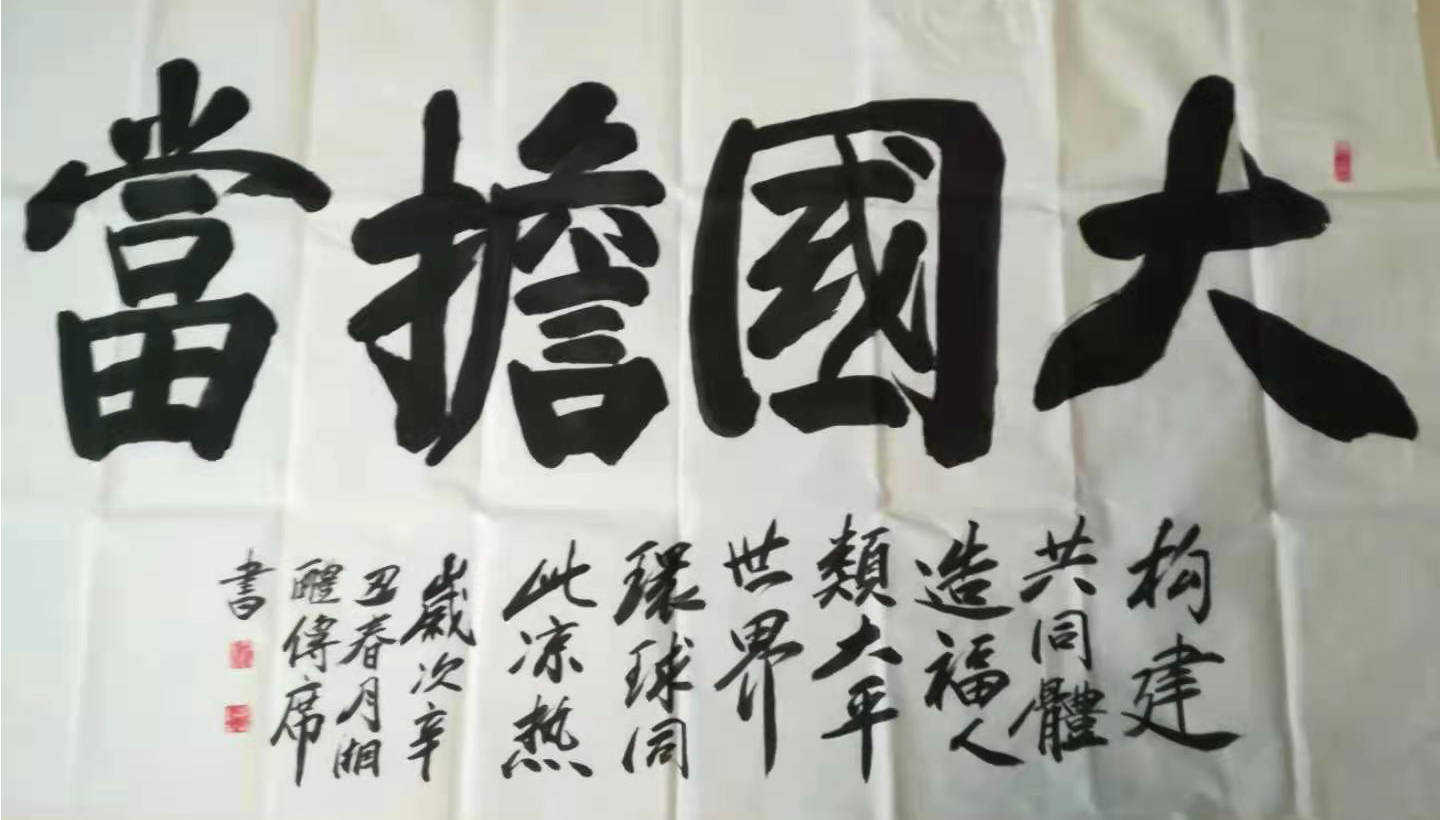 大國擔當
构建
共同體
造福人
類大平
世界
環球同
此凉热
歲次辛
丑春月湘
醴傳席
書